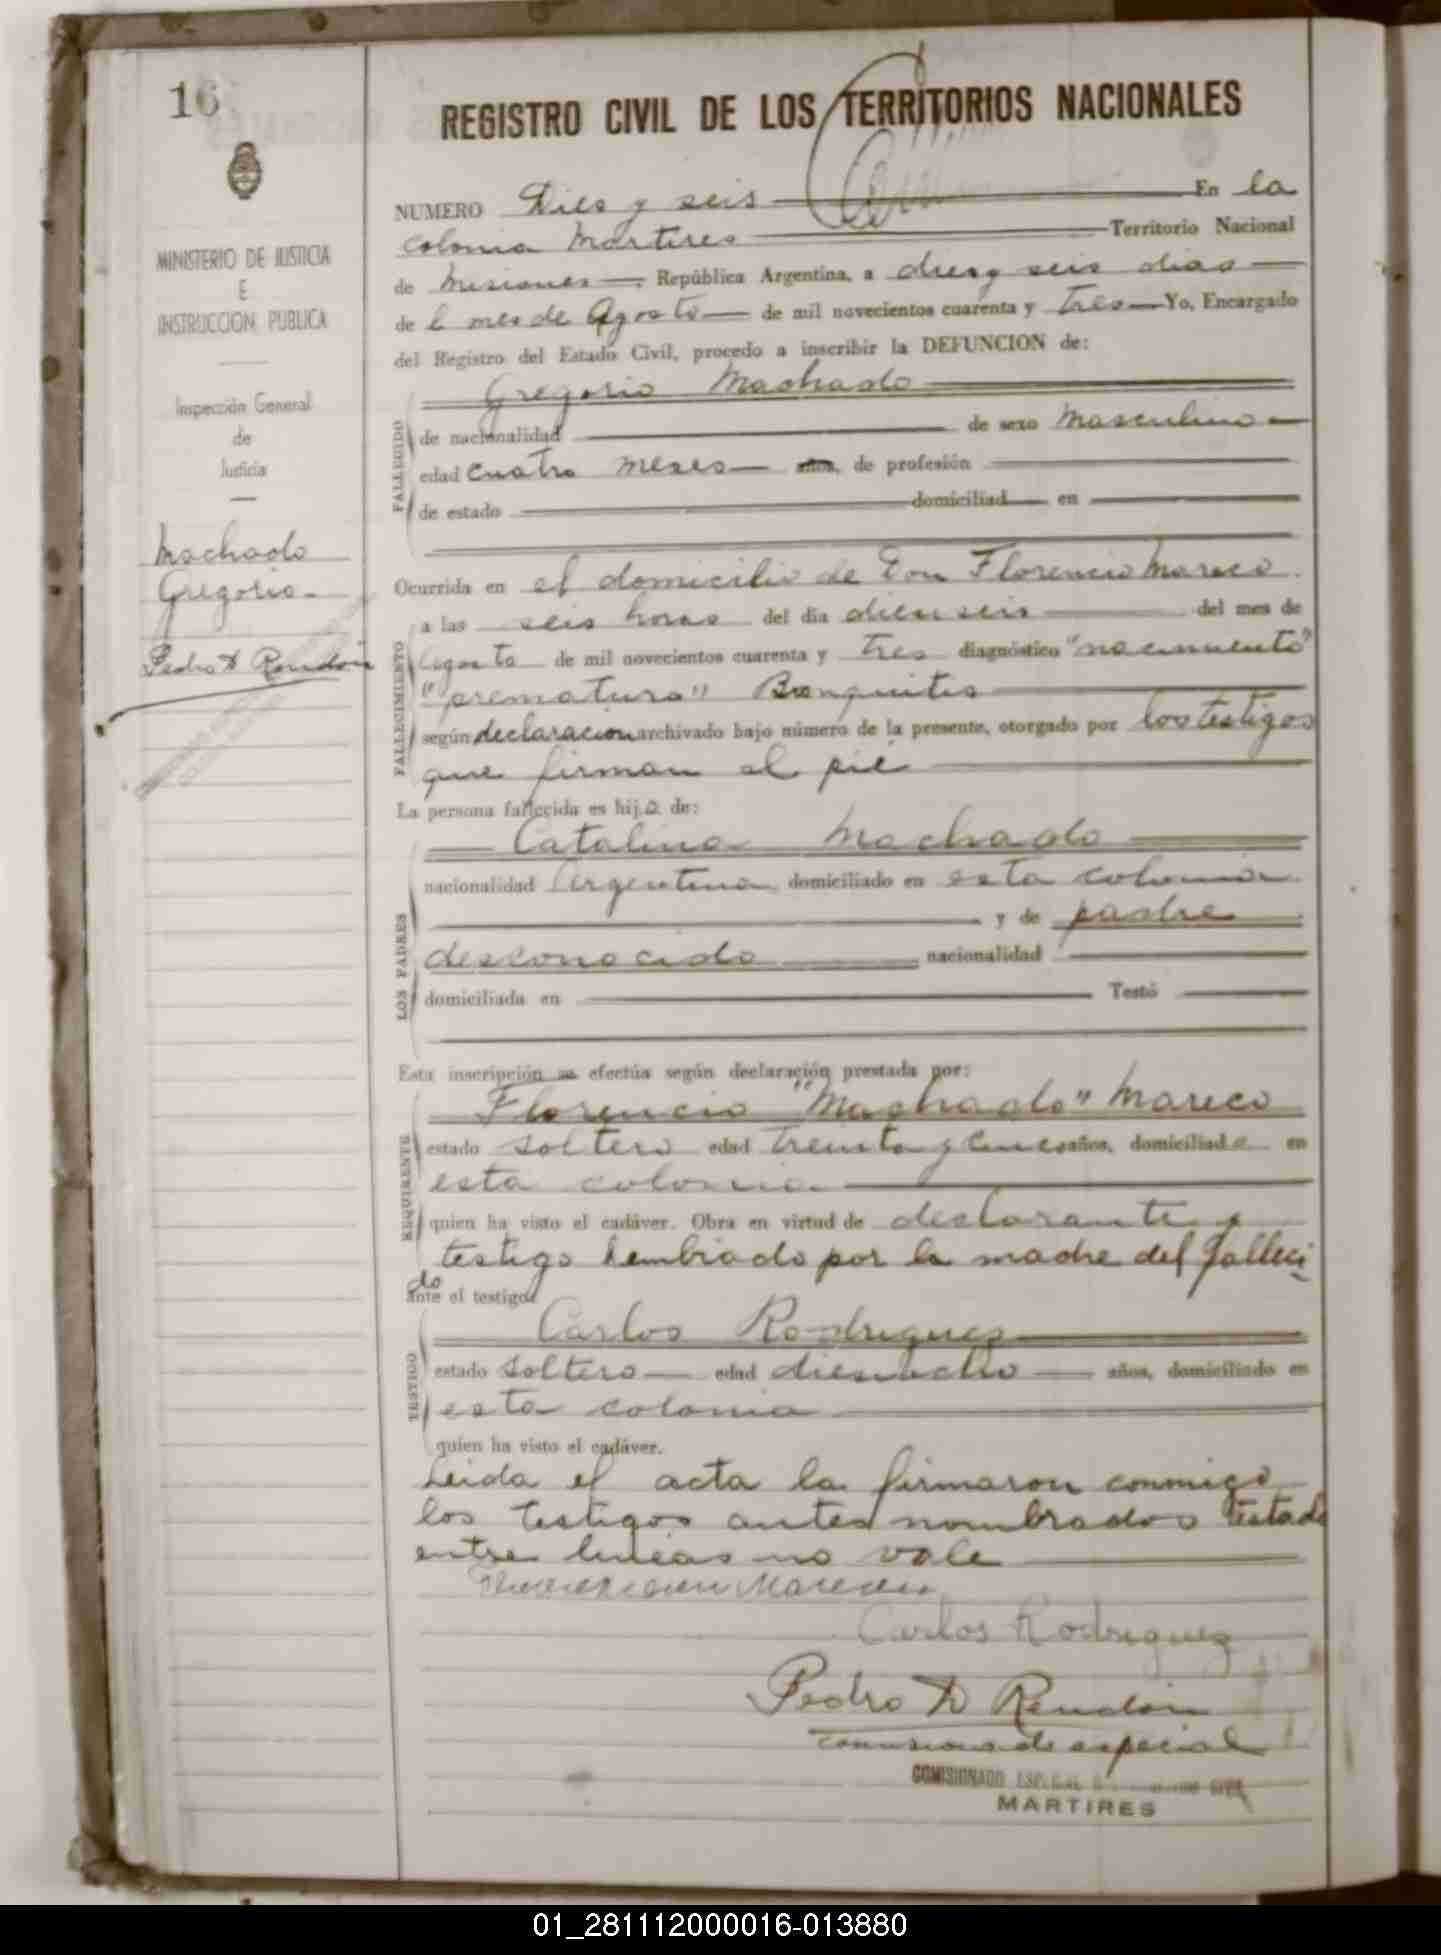 16
MINISTERIO DE JUSTICIA
E
INSTRUCCION PUBLICA
Inspección General
de
Justicia
Machado
Gregorio-
Pedro D Rendón
REGISTRO CIVIL DE LOS TERRITORIOS NACIONALES
NUMERO Dies y seis En la
colonia Martires Territorio Nacional
de Misiones República Argentina, a dies y seis dias
de l mes de Agosto de mil novecientos cuarenta y tres Yo, Encargado
del Registro del Estado Civil, procedo a inscribir la DEFUNCION de:
Gregorio Machado
FALLECIDO
de nacionalidad de sexo masculino
edad cuatro meses años, de profesión
de estado domiciliad en
Ocurrida en el domicilio de Don Florencio Mareco.
FALLECIMIENTO
a las seis horas del día dieciseis del mes de
Agosto de mil novecientos cuarenta y tres diagnóstico "nacimiento"
"prematuro" Bronquitis
según declaracion archivado bajo número de la presente, otorgado por los testigos
que firman al pié
La persona fallecida es hijo de:
LOS PADRES
Catalina Machado
nacionalidad Argentina domiciliado en esta colonia
y de padre
desconocido nacionalidad
domiciliada en Testó
Esta inscripción se efectúa según declaración prestada por:
REQUIRENTE
Florencio "Machado" Mareco
estado soltero edad treinta y cinco años, domiciliado en
esta colonia
quien ha visto el cadáver. Obra en virtud de declarante y
testigo por la madre del falleci
do
ante el testigo
TESTIGO
Carlos Rodriguez
estado soltero edad dieciocho años, domiciliado en
esta colonia
quien ha visto el cadáver.
Leida el acta la firmaron conmigo
los testigos antes nombrados testado
entre lineas no vale
Carlos Rodriguez
Pedro D Rendón
Comisionado especial
COMISIONADO ESPECIAL
MARTIRES
01_281112000016-013880